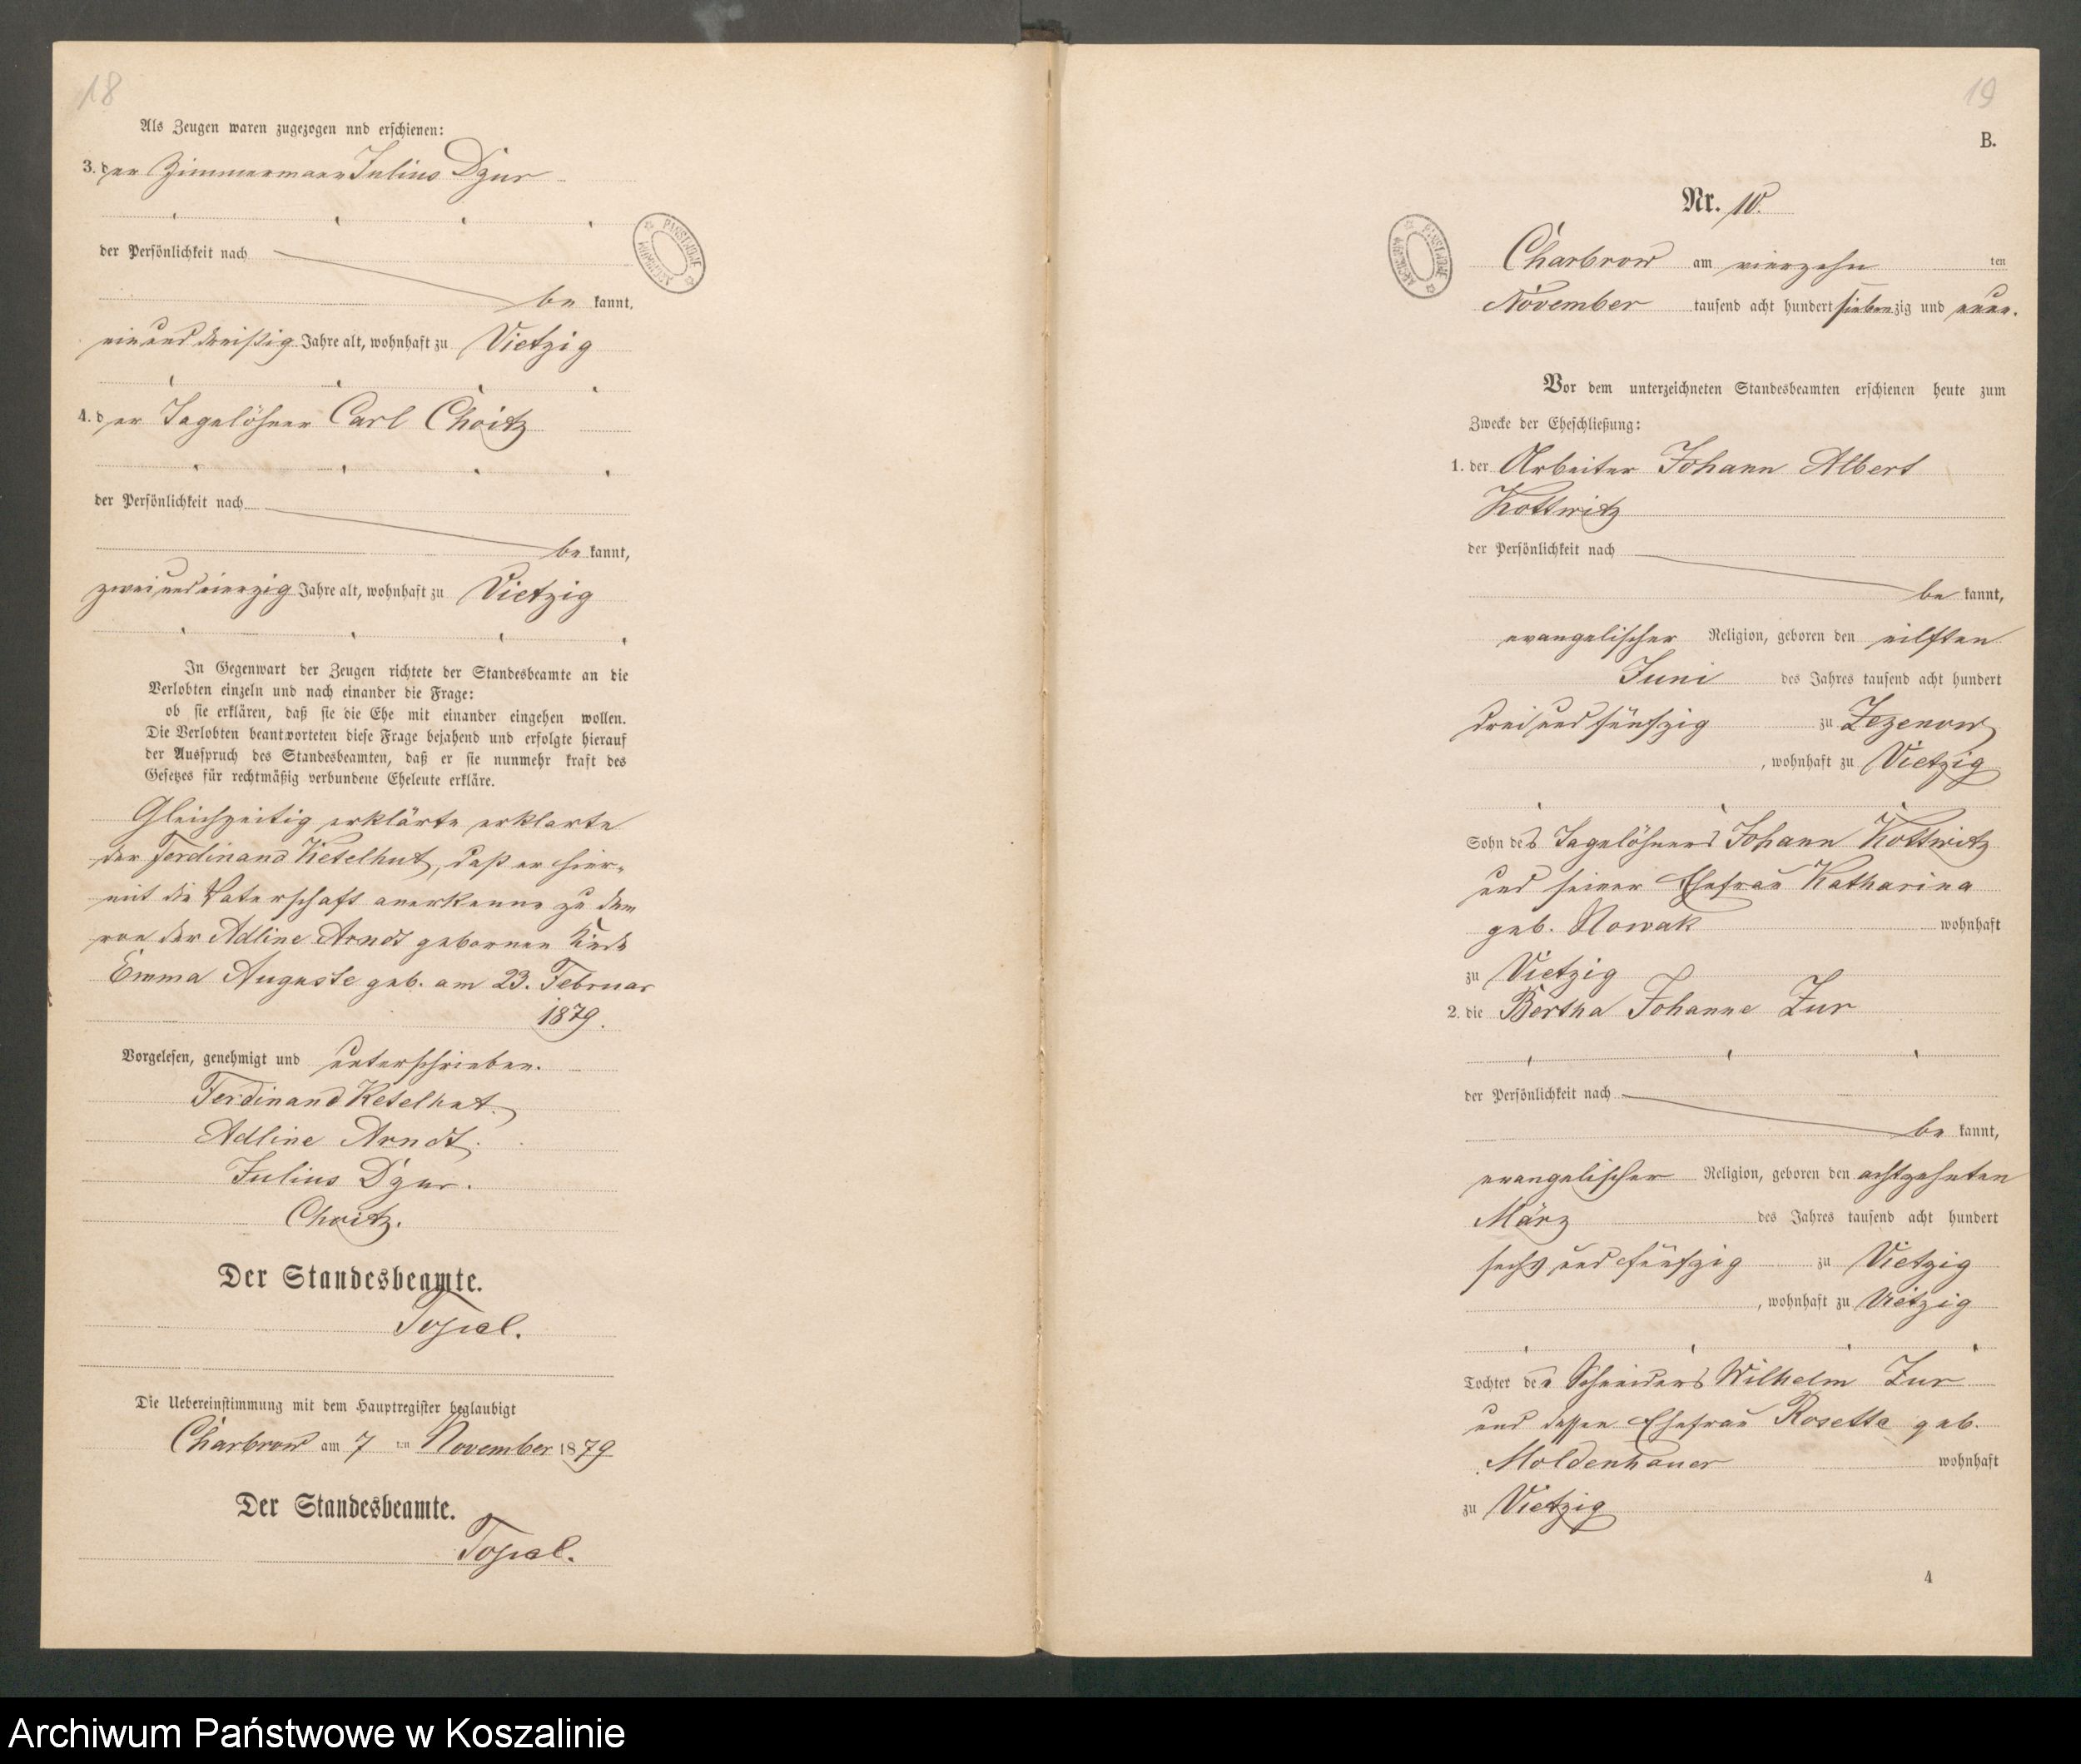 18
Als Zeugen waren zugezogen nnd erschienen:
3. der Zimmermann Julius Dzur
der Persönlichkeit nach
be kannt,
einunddreißig Jahre alt, wohnhaft zu Vietzig
4. der Tagelöhner Carl Choitz
der Persönlichkeit nach
be kannt,
zweiundvierzig Jahre alt, wohnhaft zu Vietzig
In Gegenwart der Zeugen richtete der Standesbeamte an die
Verlobten einzeln und nach einander die Frage:
ob sie erklären, daß sie die Ehe mit einander eingehen wollen.
Die Verlobten beantworteten diese Frage bejahend und erfolgte hierauf
der Ausspruch des Standesbeamten, daß er sie nunmehr kraft des
Gesetzes für rechtmäßig verbundene Eheleute erkläre.
Gleichzeitig erklärte erklarte
der Ferdinand Ketelhut, daß er hier-
mit die Vaterschaft anerkenne zu dem
von der Adline Arndt gebornen Kinde
Emma Auguste geb. am 23. Februar
1879.
Vorgelesen, genehmigt und unterschrieben.
Ferdinand Ketelhut.
Adline Arndt.
Julius Dzur.
Choitz.
Der Standesbeamte.
Die Uebereinstimmung mit dem Hauptregister beglaubigt
Charbrow am 7 ten November 1879
Der Standesbeamte.
ARCHIWUM PAŃSTWOWE
19
B.
Nr. 10.
ARCHIWUM PAŃSTWOWE
Charbrow am vierzehn ten
November tausend acht hundert siebenzig und neun.
Vor dem unterzeichneten Standesbeamten erschienen heute zum
Zwecke der Eheschließung:
1. der Arbeiter Johann Albert
Kottwitz
der Persönlichkeit nach
be kannt,
evangelischer Religion, geboren den eilften
Juni des Jahres tausend acht hundert
drei und fünfzig zu Zezenow
, wohnhaft zu Vietzig
Sohn des Tagelöhners Johann Kottwitz
und seiner Ehefrau Katharina
geb. Nowak wohnhaft
zu Vietzig
2. die Bertha Johanne Zur
der Persönlichkeit nach
be kannt,
evangelischer Religion, geboren den achtzehnten
März des Jahres tausend acht hundert
sechs und fünfzig zu Vietzig
, wohnhaft zu Vietzig
Tochter des Schneiders Wilhelm Zur
und dessen Ehefrau Rosette geb.
Moldenhauer wohnhaft
zu Vietzig
4
Archiwum Państwowe w Koszalinie